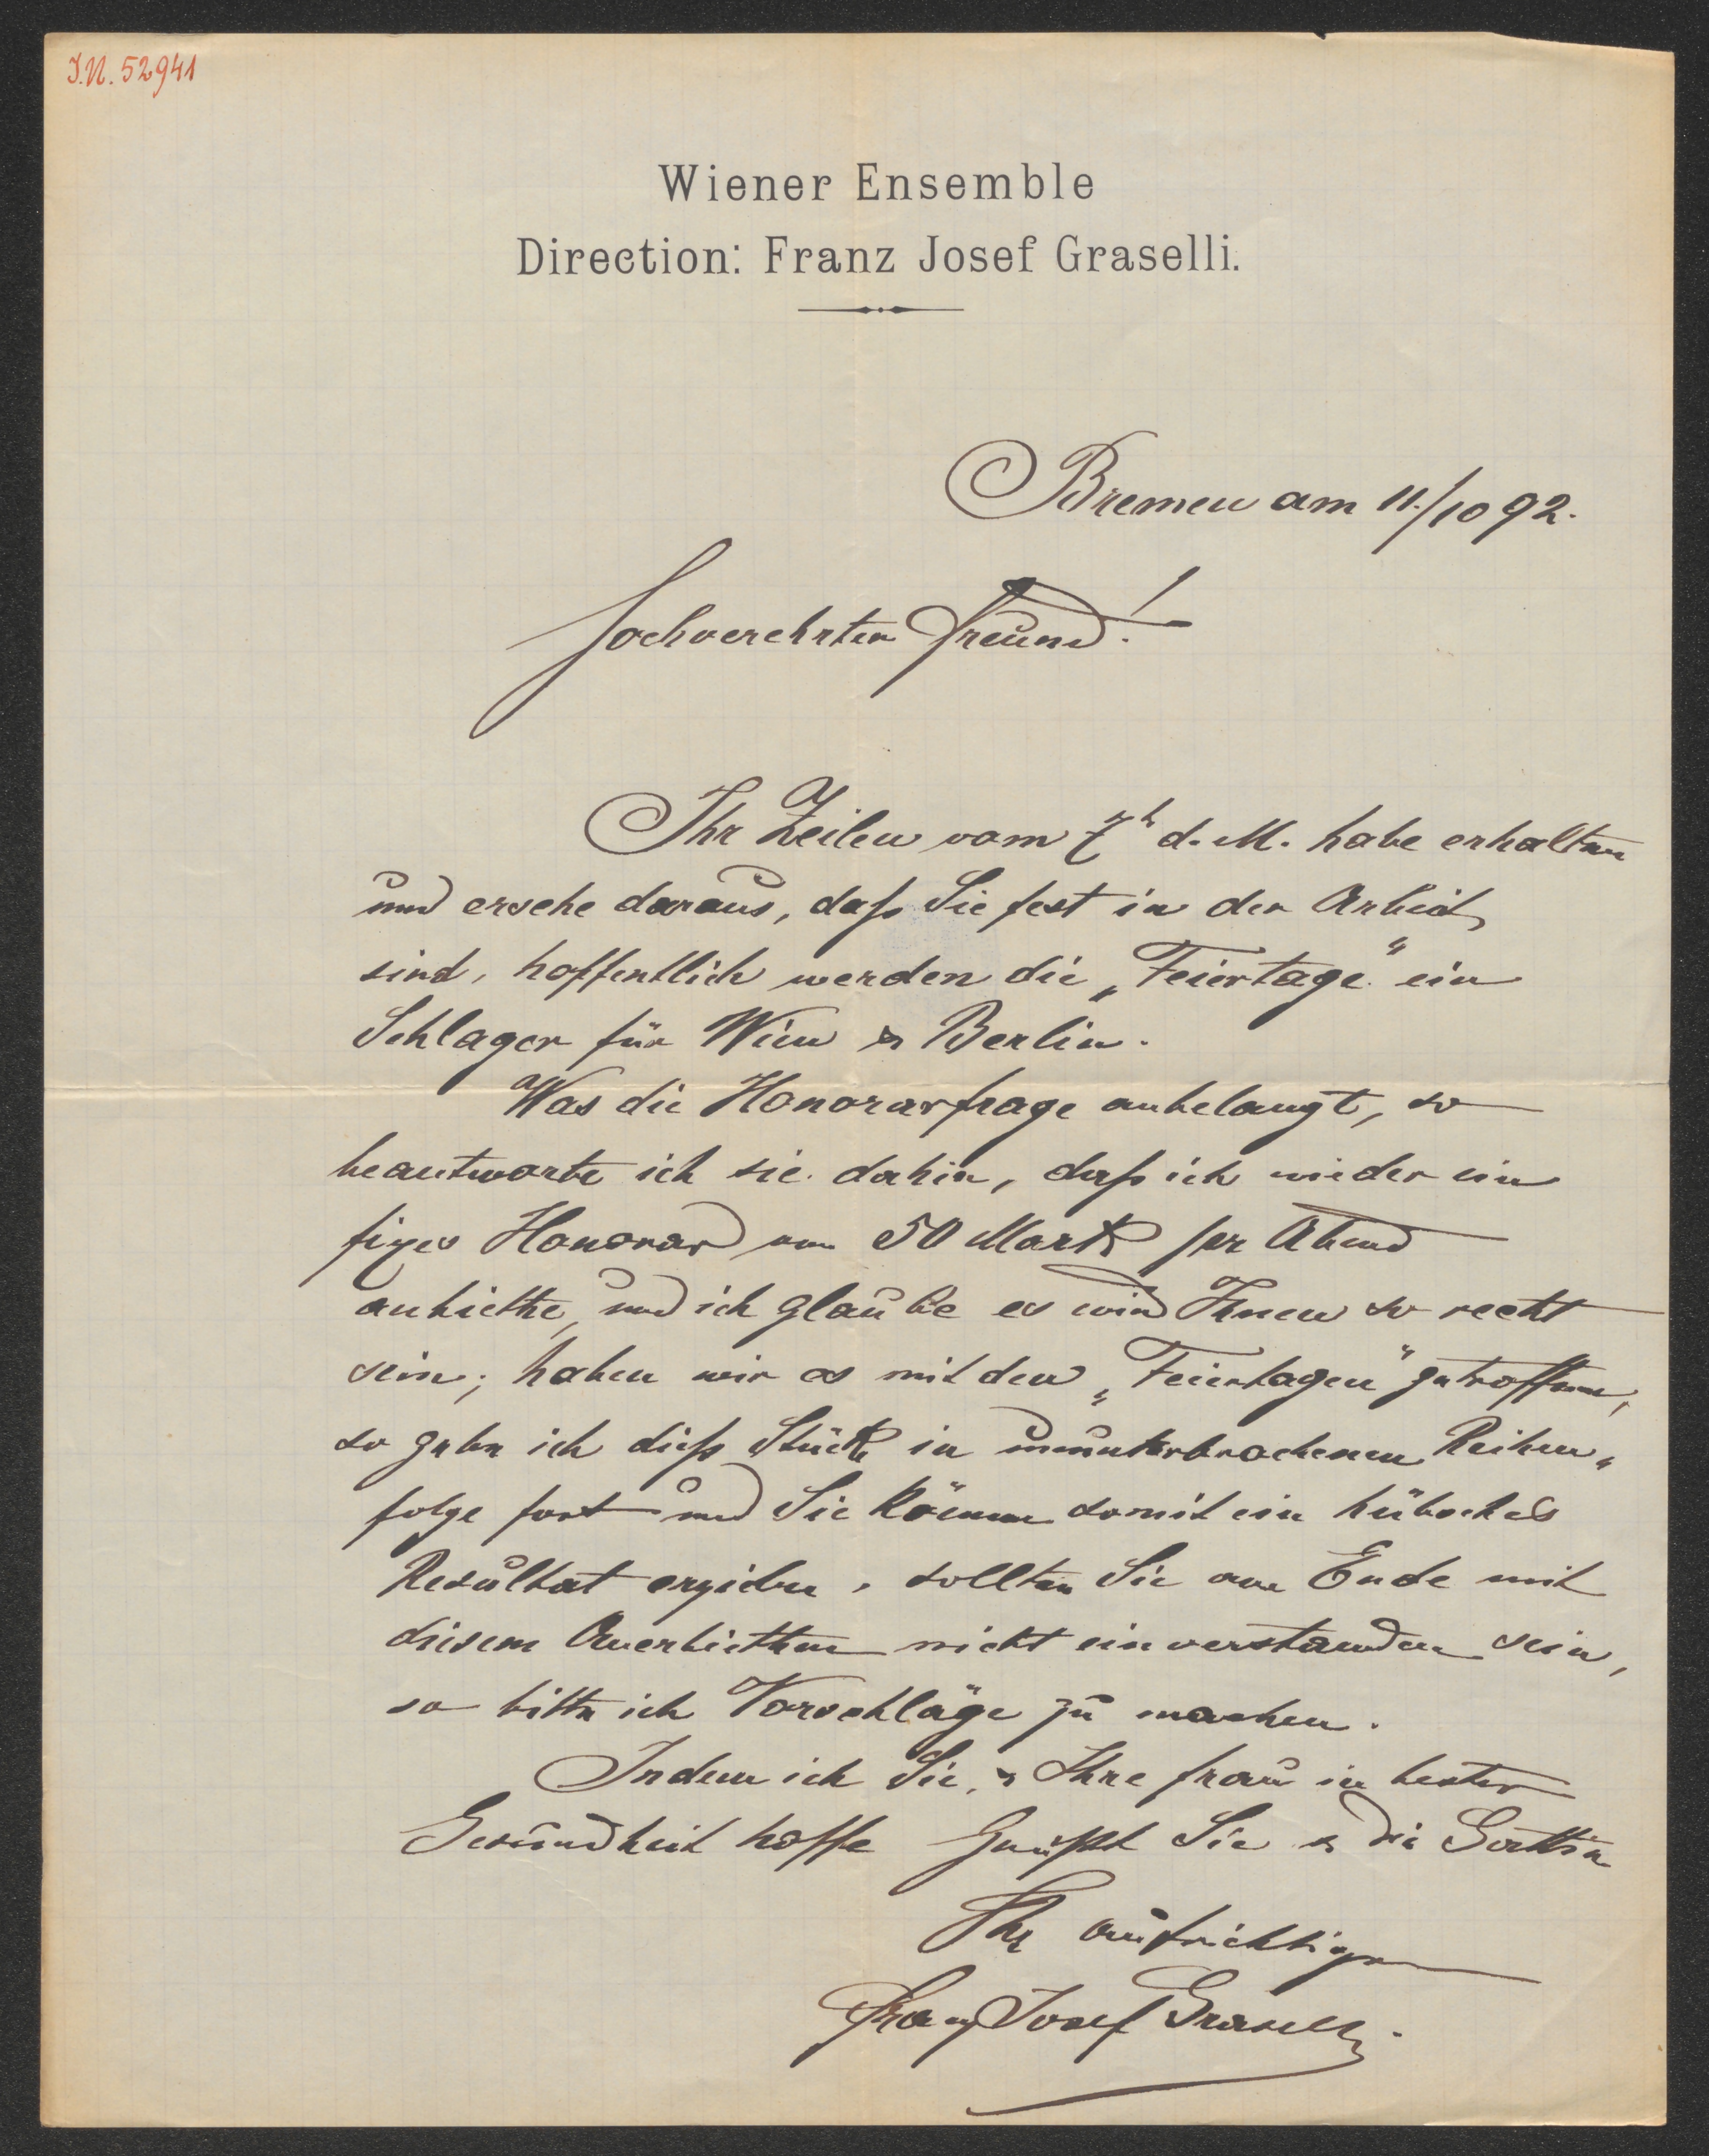 I.N. 52941
Wiener Ensemble
Direction: Franz Josef Graselli.
Bremen am 11./10 92.
Hochverehrter Freund!
Ihr Zeilen vom 7t d. M. habe erhalten
und ersehe daraus, daß Sie fest in der Arbeit
sind, hoffentlich werden die „Feiertage“ ein
Schlager für Wien & Berlin.
Was die Honorarfrage anbelangt, so
beantworte ich sie dahin, daß ich wieder ein
fixes Honorar von 50 Mark per Abend
anbiethe, und ich glaube es wird Ihnen so recht
sein; haben wir es mit den „Feiertagen“ getroffen,
so gebe ich dieß Stück in ununterbrochenen Reihen„
folge fort und Sie können somit ein hübsches
Resultat erzielen, sollten Sie am Ende mit
diesem Anerbiethen nicht einverstanden sein,
so bitte ich Vorschläge zu machen.
Indem ich Sie, & Ihre Frau in bester
Gesundheit hoffe Grüßt Sie & die Gattin
Ihr aufrichtiger
Franz Josef Graselli.